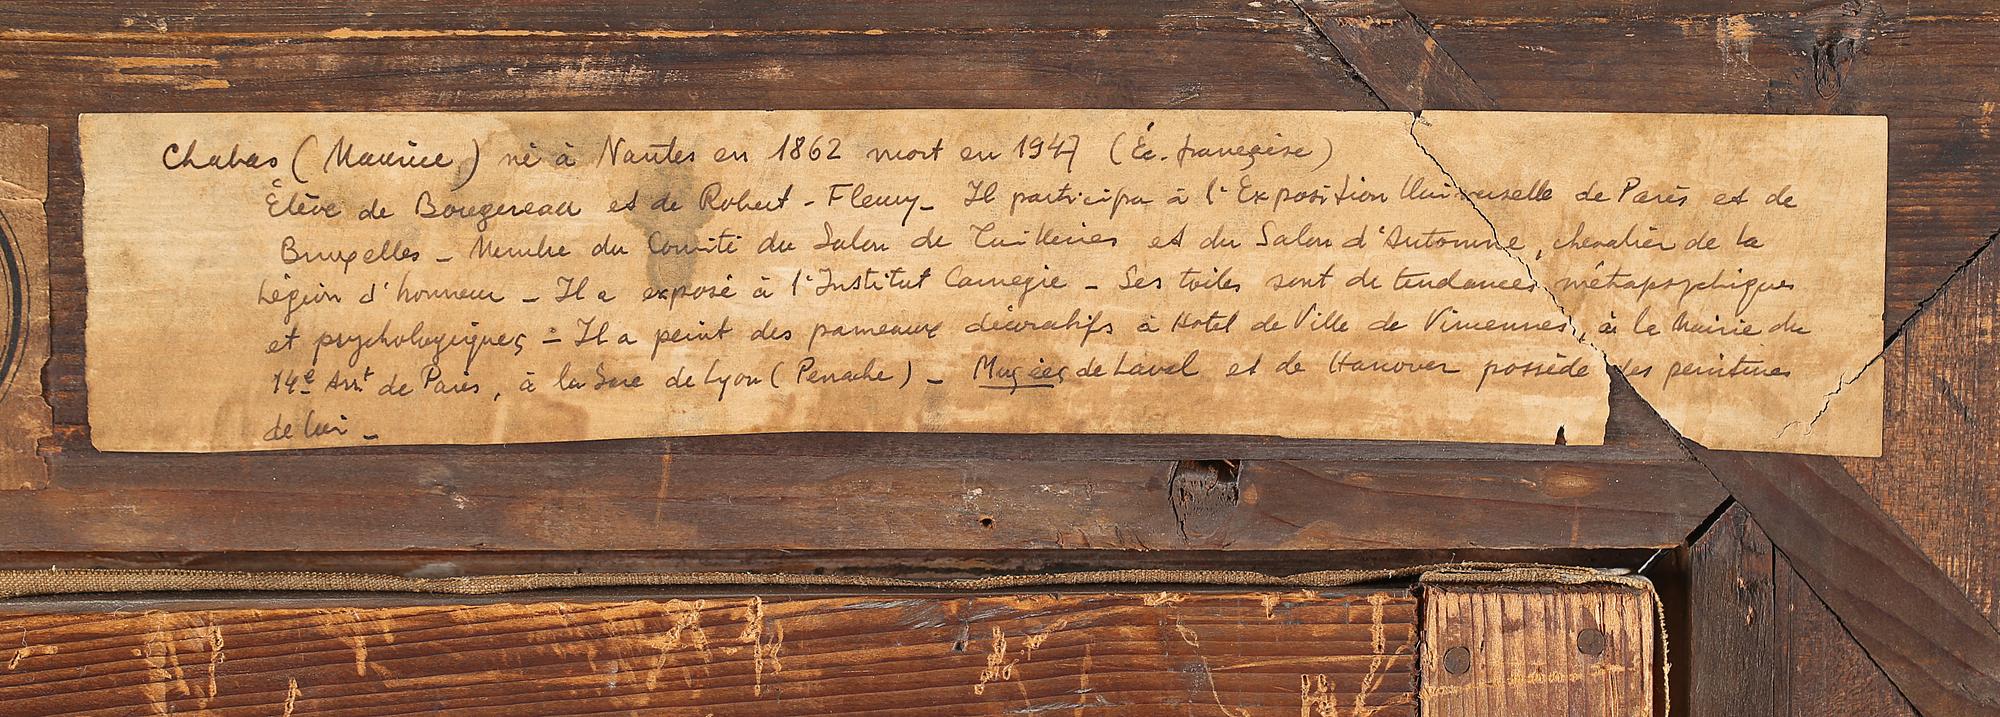 Chabas (Maurice) né à Nantes en 1862 mort en 1947 (Éc. française)
Élève de Bougereau et de Robert - Fleury - Il participa à l'Exposition Universelle de Paris et de
Bruxelles - Membre du Comité du Salon de Tuilleries et du Salon d'Automne, chevalier de la
Légion d'honneur - Il a exposé à l'Institut Carnegie - Ses toiles sont de tendances métapsychiques
et psychologiques - Il a peint des panneaux décoratifs à Hotel de Ville de Vincennes, à la Mairie du
14e Arrt de Paris, à la Gare de Lyon (Perrache) - Musées de Laval et de Hanover possède des peintures
de lui -